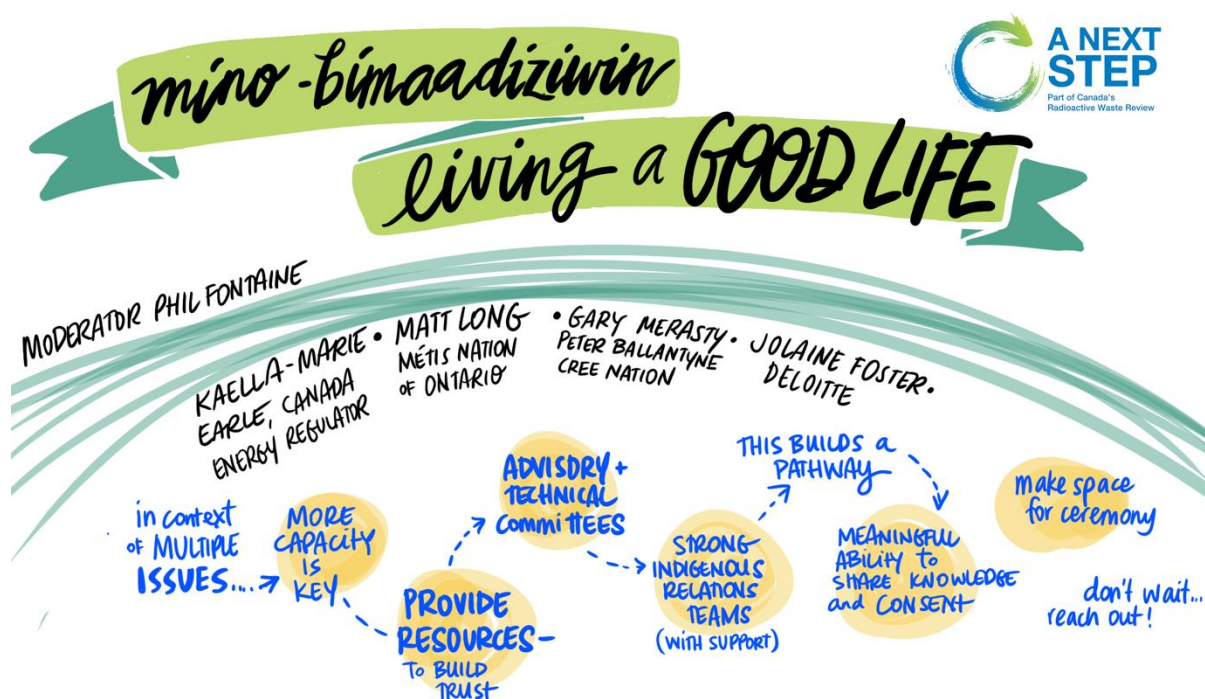 mino-bimaadiziwin
living a GOOD LIFE
A NEXT
STEP
Part of Canada's
Radioactive Waste Review
MODERATOR PHIL FONTAINE
KAELLA-MARIE
EARLE, CANADA
ENERGY REGULATOR
• MATT LONG
MÉTIS NATION
OF ONTARIO
• GARY MERASTY
PETER BALLANTYNE
CREE NATION
• JOLAINE FOSTER •
DELOITTE
in context
of MULTIPLE
ISSUES....
MORE
CAPACITY
IS
KEY
PROVIDE
RESOURCES—
TO BUILD
TRUST
ADVISORY +
TECHNICAL
COMMITTEES
STRONG
INDIGENOUS
RELATIONS
TEAMS
(WITH SUPPORT)
THIS BUILDS a
PATHWAY
MEANINGFUL
ABILITY to
SHARE KNOWLEDGE
and CONSENT
make space
for ceremony
don't wait...
reach out!